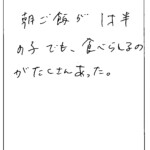 朝ご飯がは半
の子でも、食べらしるの
がたくさんあった。